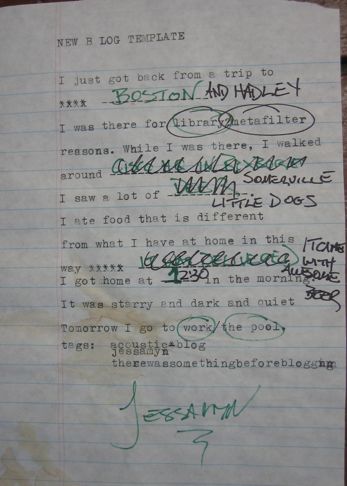 NEW B LOG TEMPLATE
I just got back from a trip to
xxxx BOSTON AND HADLEY
I was there for library/metafilter
reasons. While I was there, I walked
around SOMERVILLE
I saw a lot of LITTLE DOGS
I ate food that is different
from what I have at home in this
way xxxxx IT CAME WITH AWESOME BEER
I got home at 1230 in the morning.
It was starry and dark and quiet
Tomorrow I go to work/the pool.
tags: acoustic blog
jessamyn
therewassomethingbeforeblogging
JESSAMYN